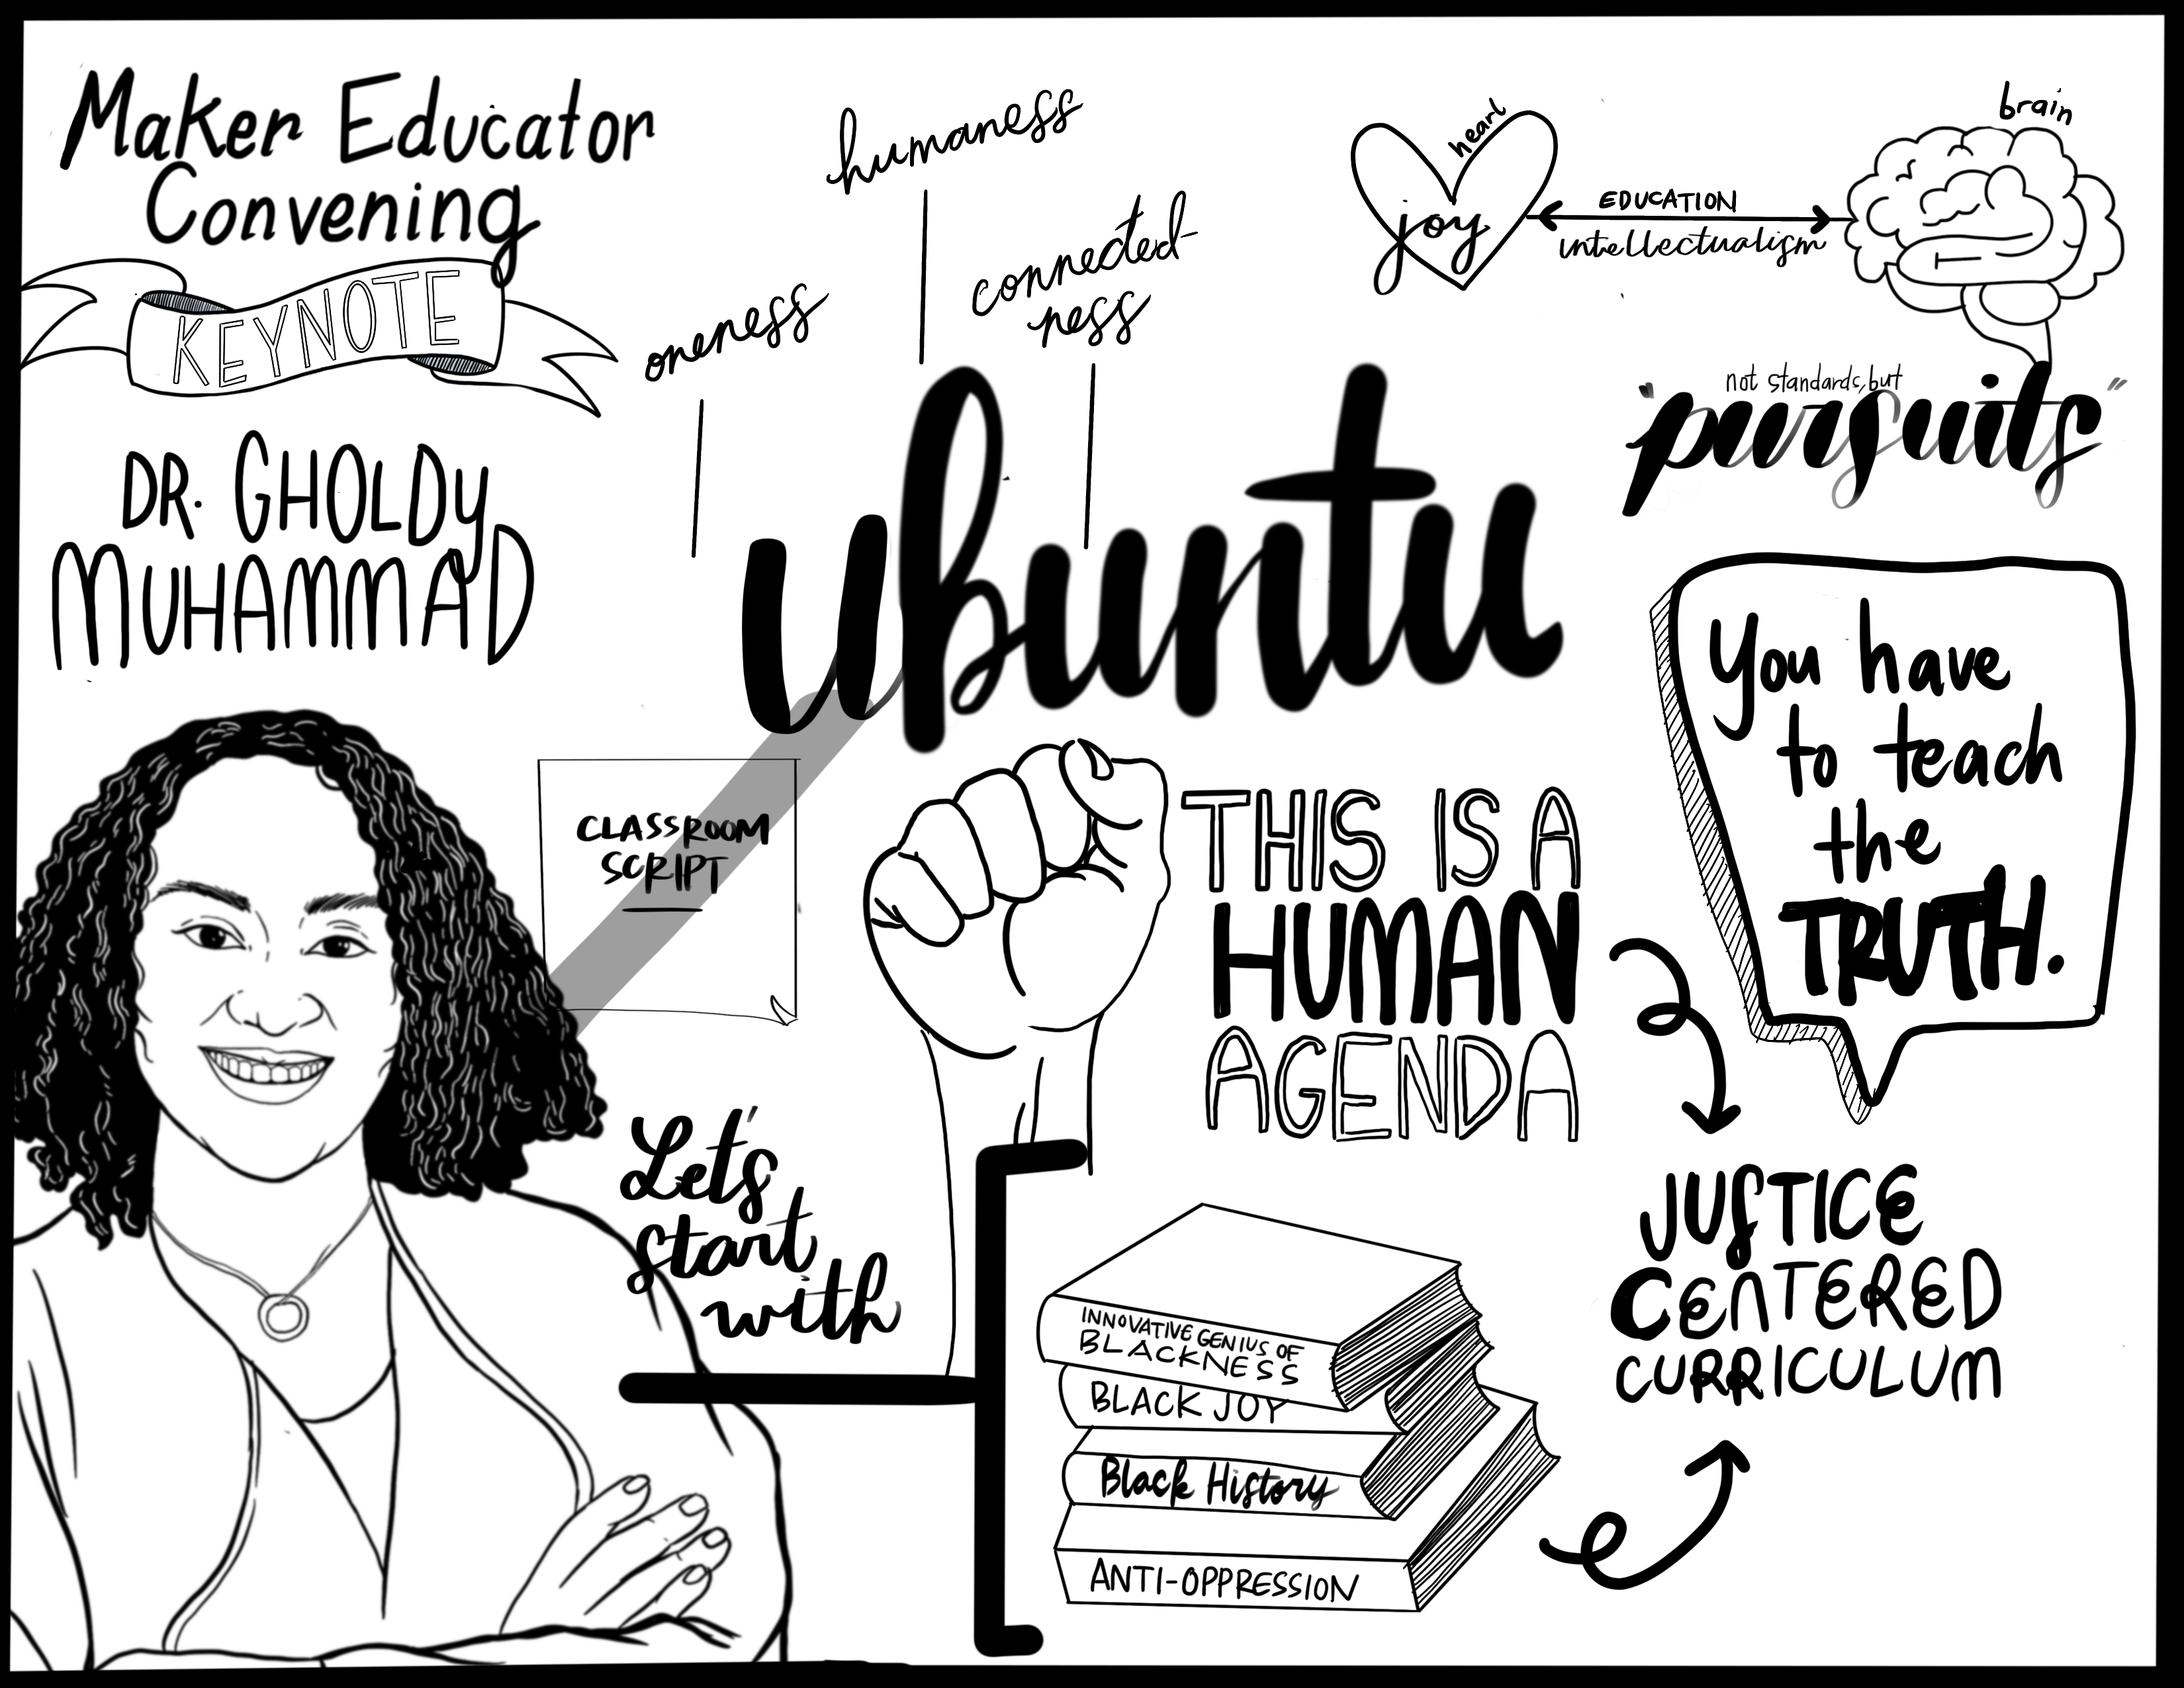 Maker Educator
Convening
KEYNOTE
DR. GHOLDY
MUHAMMAD
humaness
connected-
ness
oneness
ubuntu
heart
joy
EDUCATION
intellectualism
brain
not standards, but
"pursuits"
You have
to teach
the
TRUTH.
CLASSROOM
SCRIPT
THIS IS A
HUMAN
AGENDA
Let's
start
with
INNOVATIVE GENIUS OF
BLACKNESS
BLACK JOY
Black History
ANTI-OPPRESSION
JUSTICE
CENTERED
CURRICULUM